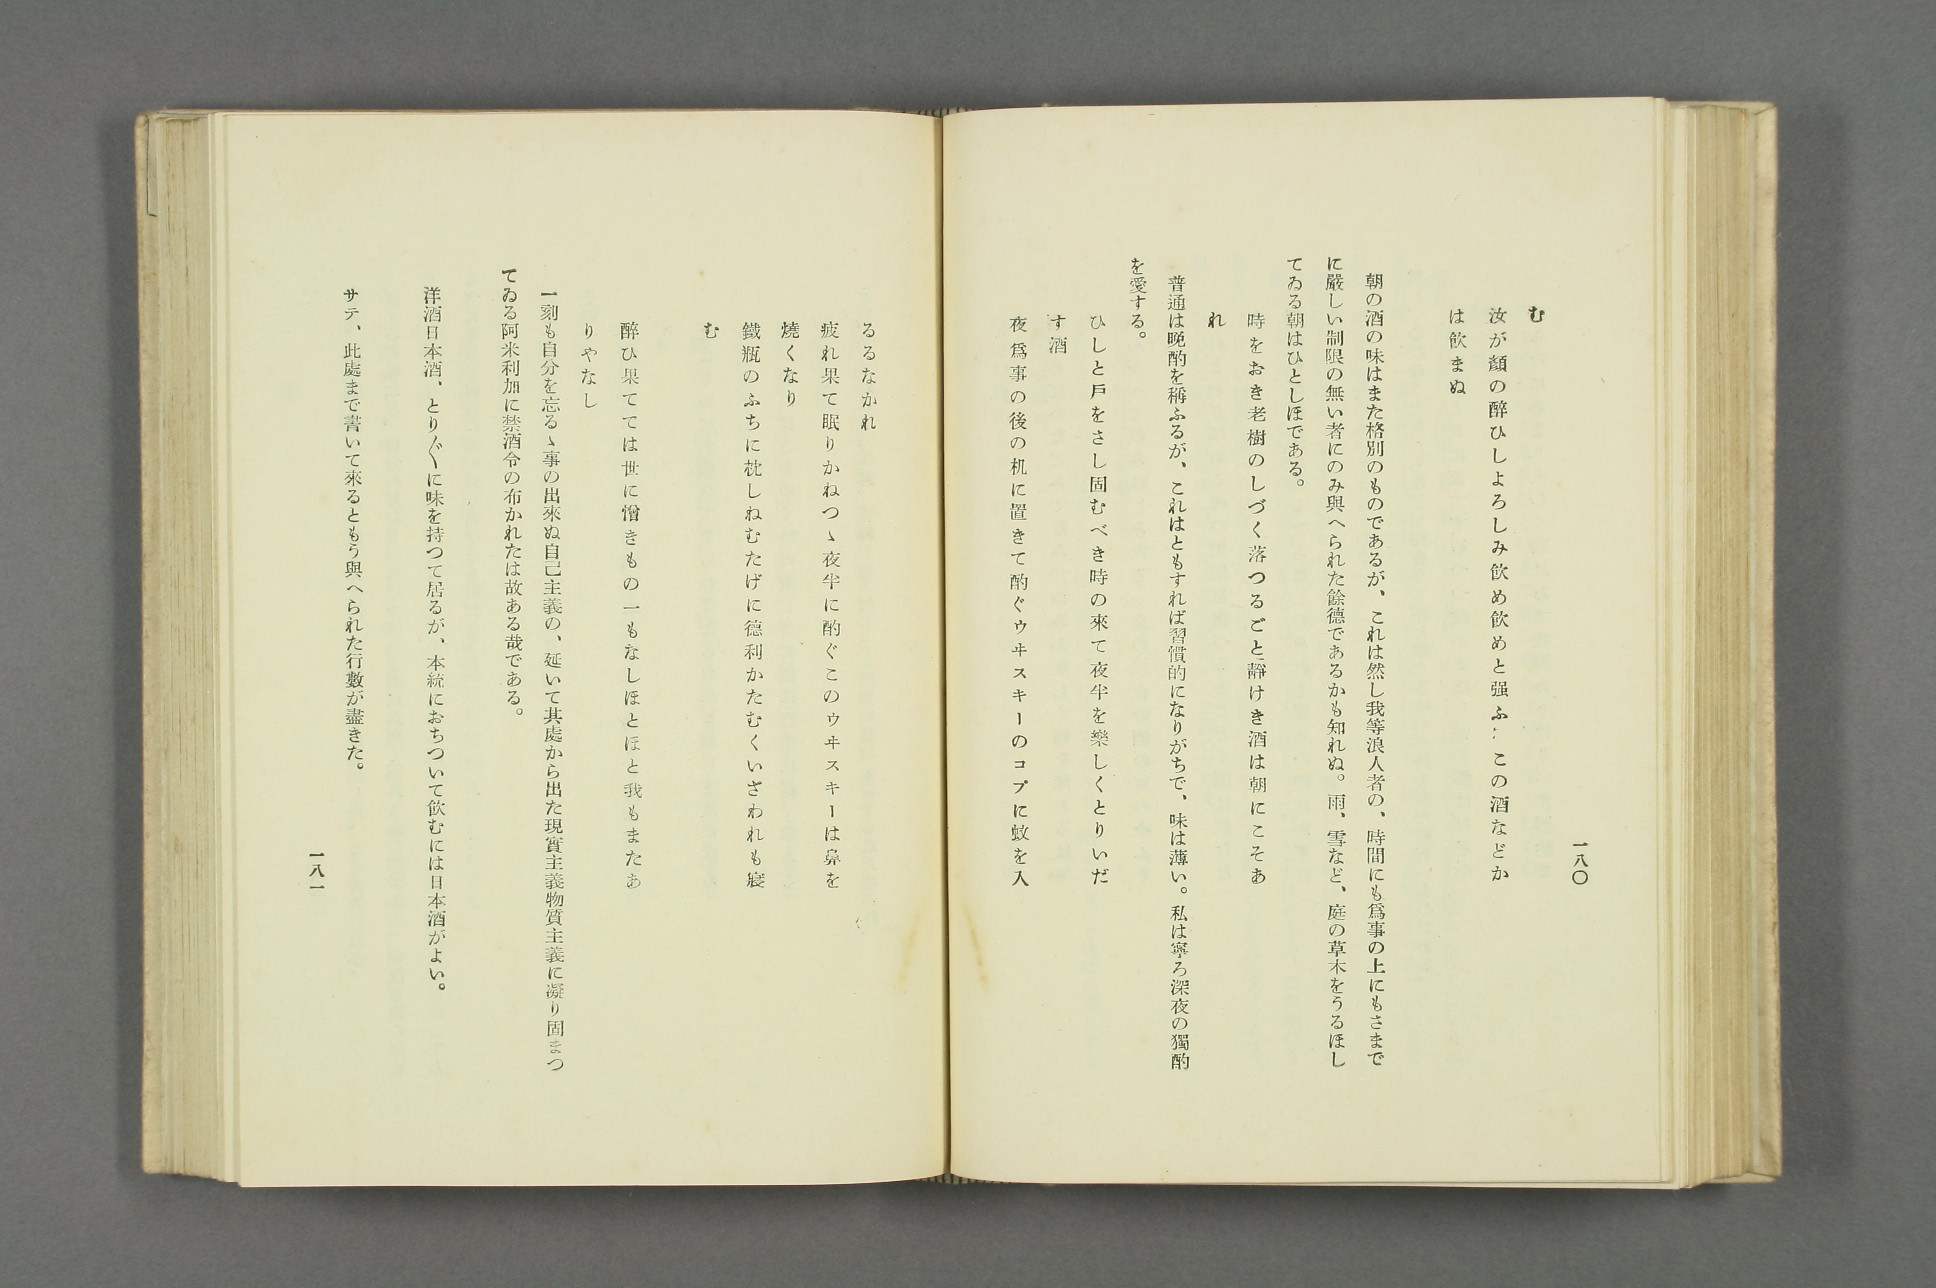 一八〇
む
汝が顏の醉ひしよろしみ飮め飮めと强ふこの酒などか
は飮まぬ
朝の酒の味はまた格別のものであるが、これは然し我等浪人者の、時間にも爲事の上にもさまで
に嚴しい制限の無い者にのみ與へられた餘德であるかも知れぬ。雨、雪など、庭の草木をうるほし
てゐる朝はひとしほである。
時をおき老樹のしづく落つるごと靜けき酒は朝にこそあ
れ
普通は晩酌を稱ふるが、これはともすれば習慣的になりがちで、味は薄い。私は寧ろ深夜の獨酌
を愛する。
ひしと戶をさし固むべき時の來て夜半を樂しくとりいだ
す酒
夜爲事の後の机に置きて酌ぐウヰスキーのコプに蚊を入
るるなかれ
疲れ果て眠りかねつゝ夜半に酌ぐこのウヰスキーは鼻を
燒くなり
鐵瓶のふちに枕しねむたげに德利かたむくいざわれも寢
む
醉ひ果てては世に憎きもの一もなしほとほと我もまたあ
りやなし
一刻も自分を忘るゝ事の出來ぬ自己主義の、延いて其處から出た現實主義物質主義に凝り固まつ
てゐる阿米利加に禁酒令の布かれたは故ある哉である。
洋酒日本酒、とり〴〵に味を持つて居るが、本統におちついて飮むには日本酒がよい。
サテ、此處まで書いて來るともう與へられた行數が盡きた。
一八一